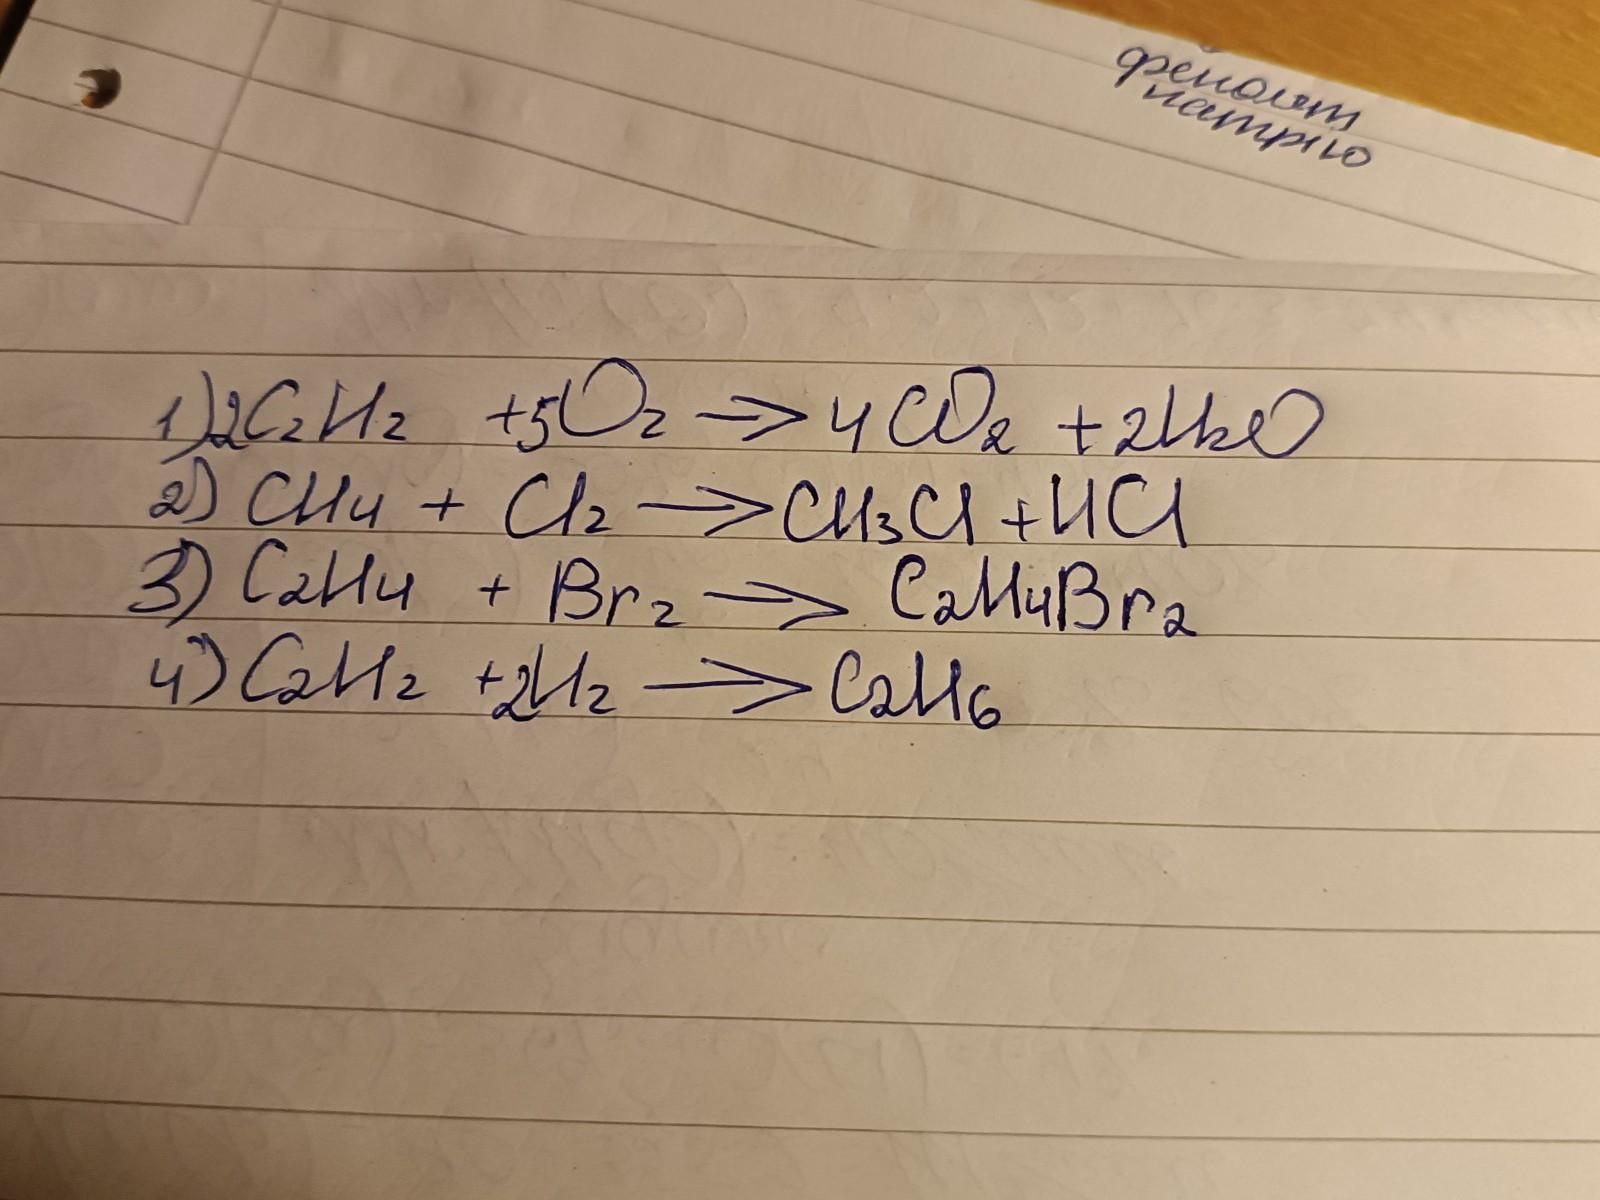 фенолят
натрію
1) 2C₂H₂ + 5O₂ → 4CO₂ + 2H₂O
2) CH₄ + Cl₂ → CH₃Cl + HCl
3) C₂H₄ + Br₂ → C₂H₄Br₂
4) C₂H₂ + 2H₂ → C₂H₆